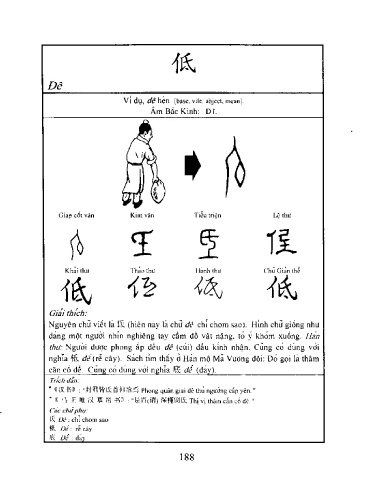 低
Đê
Ví dụ, đê hèn (base, vile, abject, mean).
Âm Bắc Kinh: DI.
Giap cốt văn Kim văn Tiểu triện Lệ thư
Khải thư Thảo thư Hành thư Chữ Giản thể
低 低 低 低
Giải thích:
Nguyên chữ viết là 氐 (hiện nay là chữ đê chỉ chom sao). Hình chữ giống như
dáng một người nhìn nghiêng tay cầm đồ vật nặng, tỏ ý khòm xuống. Hán
thư: Người được phong áp đều đê (cúi) đầu kính nhân. Cũng có dùng với
nghĩa 柢 đế (rễ cây). Sách tìm thấy ở Hán mộ Mã Vương đôi: Đó gọi là thâm
căn cố đế. Cũng có dùng với nghĩa 底 để (đáy).
Trích dẫn:
Phong quân giai đê thủ ngưỡng cấp yên."
Thị vị thâm căn cố đế."
Các chữ phụ:
氐 Đê: chỉ chom sao
柢 Đế: rễ cây
底 Để: đáy
188